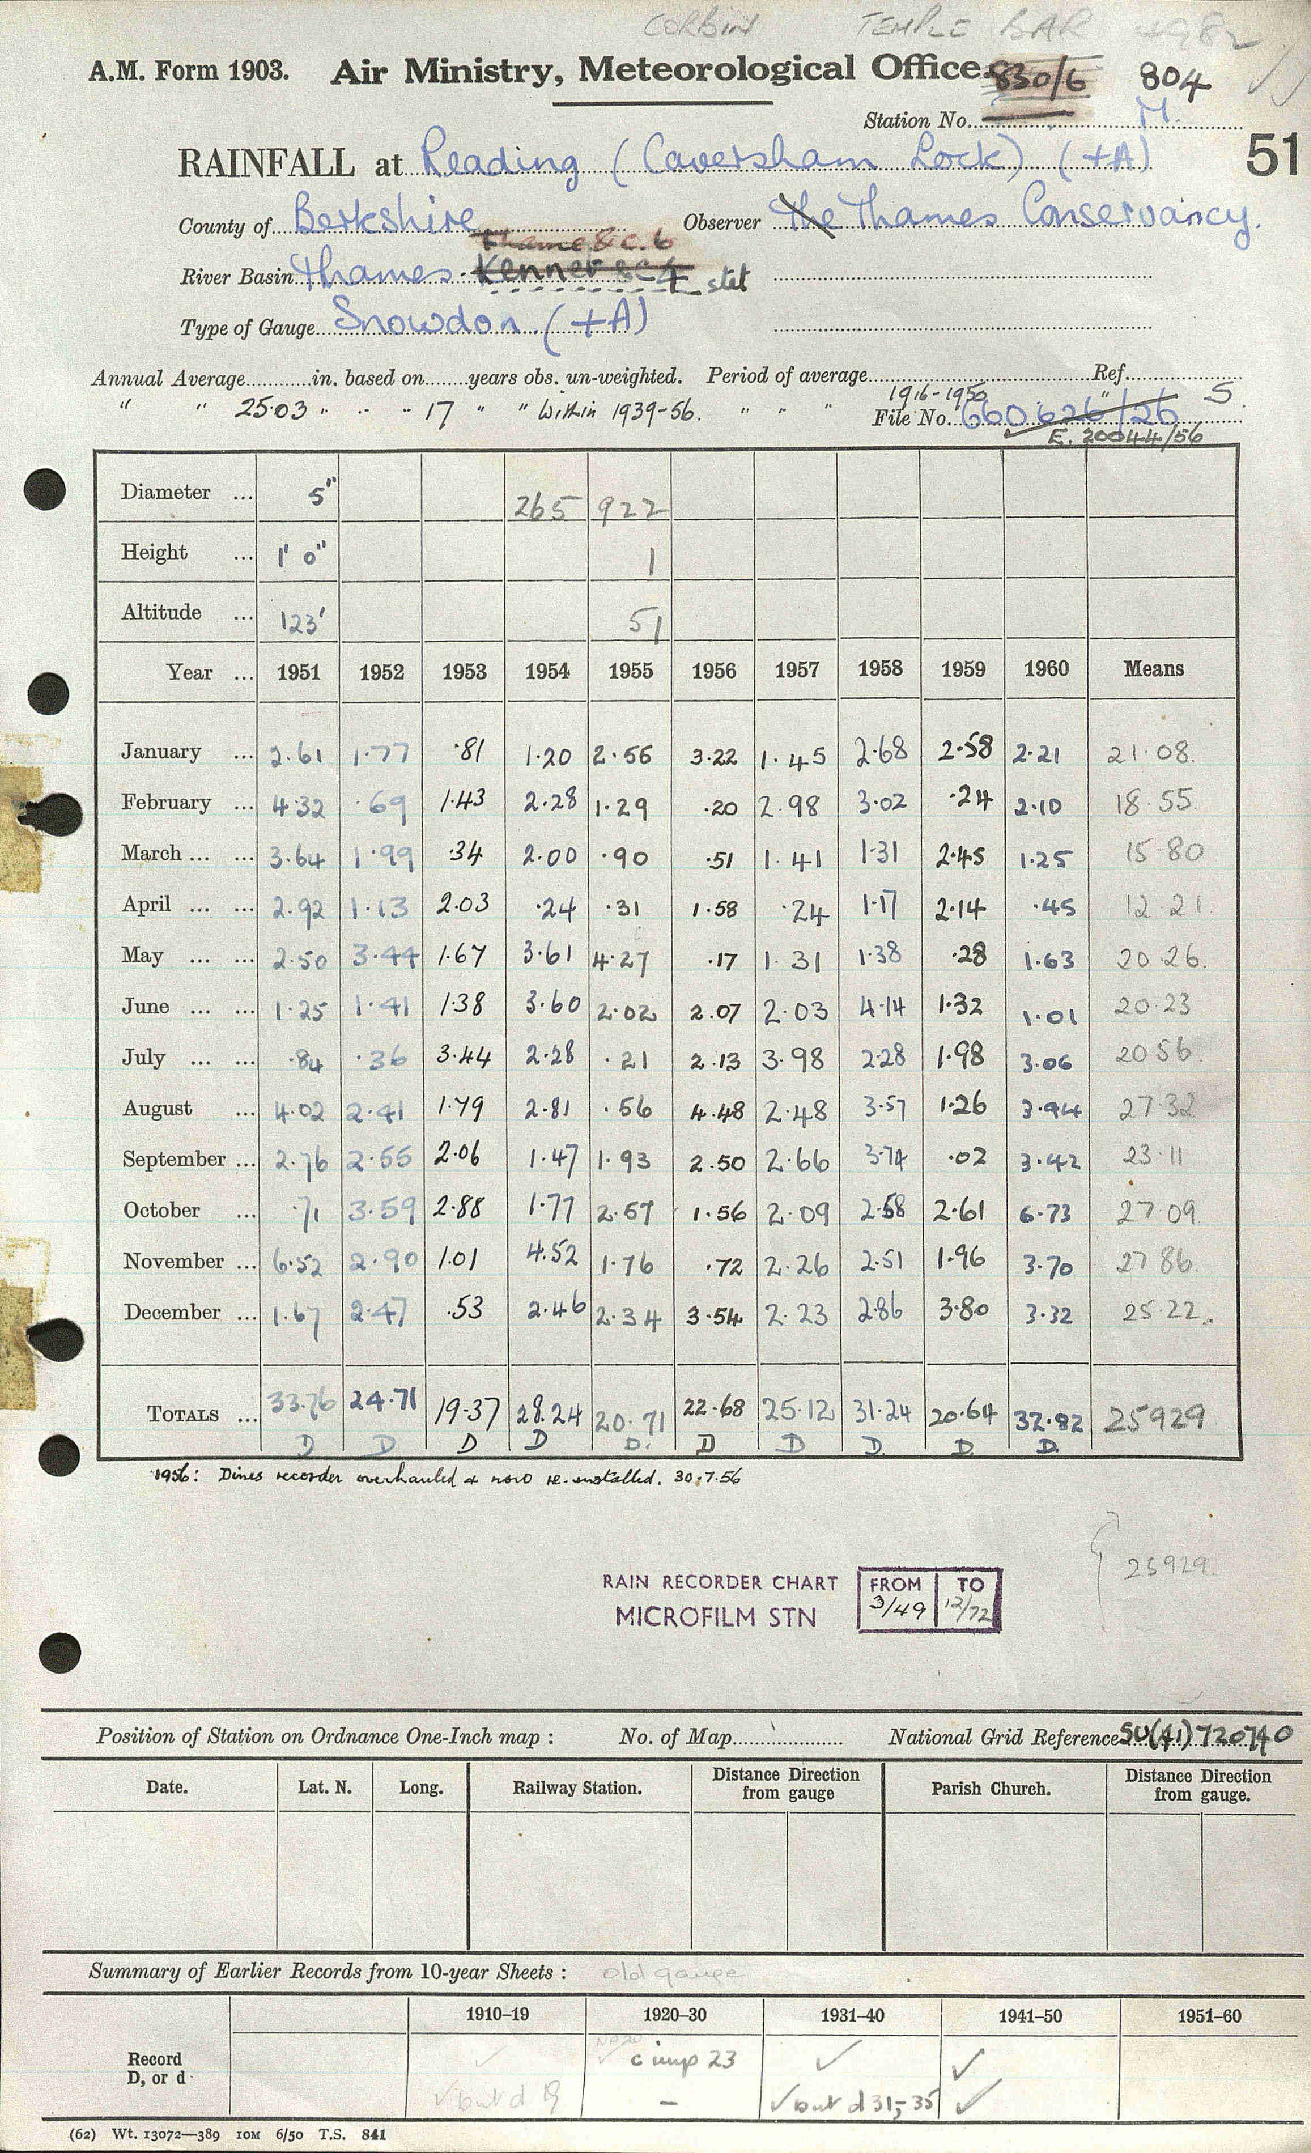 CORBIN TEMPLE BAR 4982
A.M. Form 1903. Air Ministry, Meteorological Office. 830/6 804
Station No. M.
RAINFALL at Reading (Caversham Lock) (+A) 51
County of Berkshire Observer The Thames Conservancy.
Thame &c. 6
River Basin Thames. Kennet &c 4 stet
Type of Gauge Snowdon (+A)
Annual Average in. based on years obs. un-weighted. Period of average Ref.
" " 25.03 " " " 17 " " Within 1939-56. " " " 1916-1950 "
File No. 660626/26 S.
E. 20044/56
Diameter ... 5" 265 922
Height ... 1' 0" 1
Altitude ... 123' 51
Year ... 1951 1952 1953 1954 1955 1956 1957 1958 1959 1960 Means
January ... 2.61 1.77 .81 1.20 2.56 3.22 1.45 2.68 2.58 2.21 21.08
February ... 4.32 .69 1.43 2.28 1.29 .20 2.98 3.02 .24 2.10 18.55
March ... ... 3.64 1.99 .34 2.00 .90 .51 1.41 1.31 2.45 1.25 15.80
April ... ... 2.92 1.13 2.03 .24 .31 1.58 .24 1.17 2.14 .45 12.21
May ... ... 2.50 3.44 1.67 3.61 4.27 .17 1.31 1.38 .28 1.63 20.26
June ... ... 1.25 1.41 1.38 3.60 2.02 2.07 2.03 4.14 1.32 1.01 20.23
July ... ... .84 .36 3.44 2.28 .21 2.13 3.98 2.28 1.98 3.06 20.56
August ... 4.02 2.41 1.79 2.81 .56 4.48 2.48 3.57 1.26 3.94 27.32
September ... 2.76 2.55 2.06 1.47 1.93 2.50 2.66 3.74 .02 3.42 23.11
October ... .71 3.59 2.88 1.77 2.57 1.56 2.09 2.58 2.61 6.73 27.09
November ... 6.52 2.90 1.01 4.52 1.76 .72 2.26 2.51 1.96 3.70 27.86
December ... 1.67 2.47 .53 2.46 2.34 3.54 2.23 2.86 3.80 3.32 25.22
TOTALS ... 33.76 24.71 19.37 28.24 20.71 22.68 25.12 31.24 20.64 32.82 25929
D D D D D. D D D. D. D.
1956: Dines recorder overhauled & now re-installed. 30.7.56
25929
RAIN RECORDER CHART FROM TO
MICROFILM STN 3/49 12/72
Position of Station on Ordnance One-Inch map : No. of Map National Grid Reference SU(41)720740
Date. Lat. N. Long. Railway Station. Distance Direction from gauge Parish Church. Distance Direction from gauge.
Summary of Earlier Records from 10-year Sheets : old gauge
1910–19 1920–30 1931–40 1941–50 1951–60
Record ✓ c imp 23 ✓ ✓
D, or d ✓ but d 19 – ✓ but d 31-35 ✓
(62) Wt. 13072—389 10M 6/50 T.S. 841